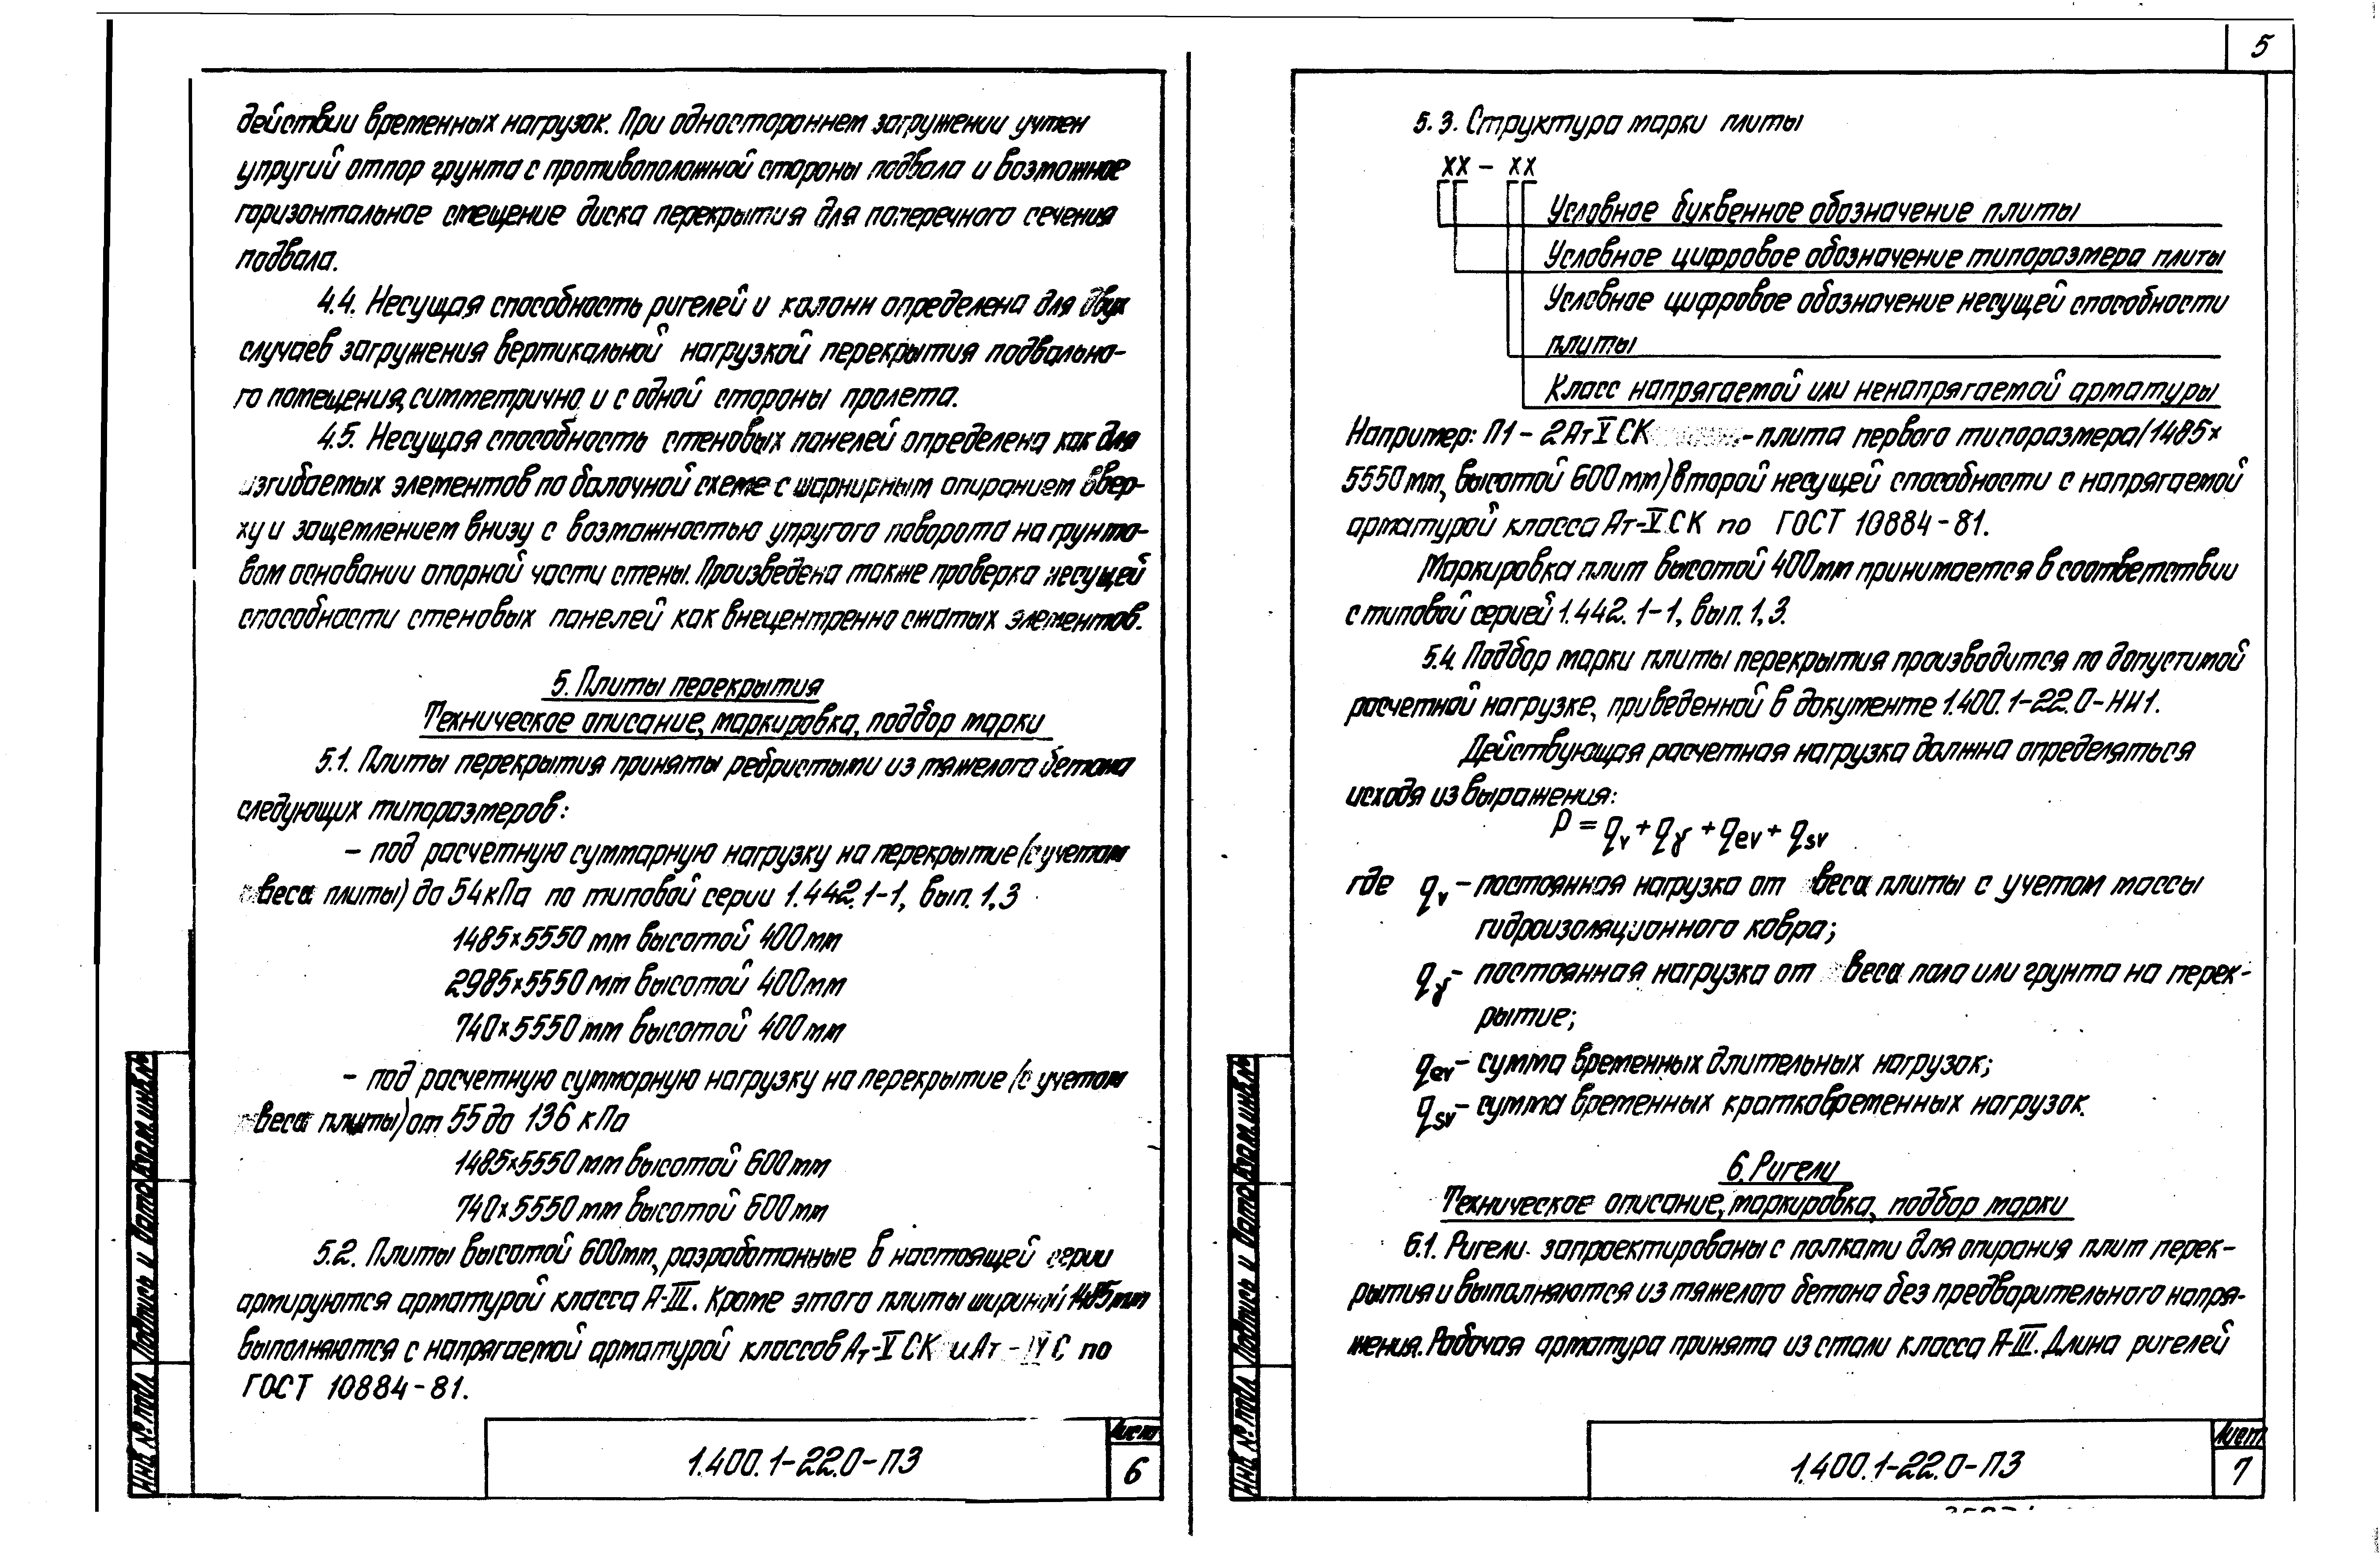 действии временных нагрузок. При одностороннем загружении учтен
упругий отпор грунта с противоположной стороны подвала и возможное
горизонтальное смещение диска перекрытия для поперечного сечения
подвала.
4.4. Несущая способность ригелей и колонн определена для двух
случаев загружения вертикальной нагрузкой перекрытия подвально-
го помещения, симметрично и с одной стороны пролета.
4.5. Несущая способность стеновых панелей определена как для
изгибаемых элементов по балочной схеме с шарнирным опиранием ввер-
ху и защемлением внизу с возможностью упругого поворота на грунто-
вом основании опорной части стены. Произведена также проверка несущей
способности стеновых панелей как внецентренно сжатых элементов.
5. Плиты перекрытия
Техническое описание, маркировка, подбор марки
5.1. Плиты перекрытия приняты ребристыми из тяжелого бетона
следующих типоразмеров:
– под расчетную суммарную нагрузку на перекрытие (с учетом
веса плиты) до 54 кПа по типовой серии 1.442.1-1, вып. 1,3
1485×5550 мм высотой 400 мм
2985×5550 мм высотой 400 мм
740×5550 мм высотой 400 мм
– под расчетную суммарную нагрузку на перекрытие (с учетом
веса плиты) от 55 до 136 кПа
1485×5550 мм высотой 600 мм
740×5550 мм высотой 600 мм
5.2. Плиты высотой 600мм, разработанные в настоящей серии
армируются арматурой класса А-III. Кроме этого плиты шириной 1485 мм
выполняются с напрягаемой арматурой классов Ат-V СК и Ат-IV С, по
ГОСТ 10884-81.
1.400.1-22.0-ПЗ
Лист
6
Инв. № подл.
Подпись и дата
Взам. инв. №
5
5.3. Структура марки плиты
ХХ – ХХ
Условное буквенное обозначение плиты
Условное цифровое обозначение типоразмера плиты
Условное цифровое обозначение несущей способности
плиты
Класс напрягаемой или ненапрягаемой арматуры
Например: П1 – 2АтV СК – плита первого типоразмера (1485×
5550 мм, высотой 600 мм) второй несущей способности с напрягаемой
арматурой класса Ат-V СК по ГОСТ 10884-81.
Маркировка плит высотой 400мм принимается в соответствии
с типовой серией 1.442.1-1, вып. 1,3.
5.4. Подбор марки плиты перекрытия производится по допустимой
расчетной нагрузке, приведенной в документе 1.400.1-22.0-НИ1.
Действующая расчетная нагрузка должна определяться
исходя из выражения:
P = qv + qγ + qev + qsv
где qv – постоянная нагрузка от веса плиты с учетом массы
гидроизоляционного ковра;
qγ – постоянная нагрузка от веса пола или грунта на перек-
рытие;
qev – сумма временных длительных нагрузок;
qsv – сумма временных кратковременных нагрузок.
6. Ригели
Техническое описание, маркировка, подбор марки
6.1. Ригели запроектированы с полками для опирания плит перек-
рытия и выполняются из тяжелого бетона без предварительного напря-
жения. Рабочая арматура принята из стали класса А-III. Длина ригелей
1.400.1-22.0-ПЗ
Лист
7
Инв. № подл.
Подпись и дата
Взам. инв. №